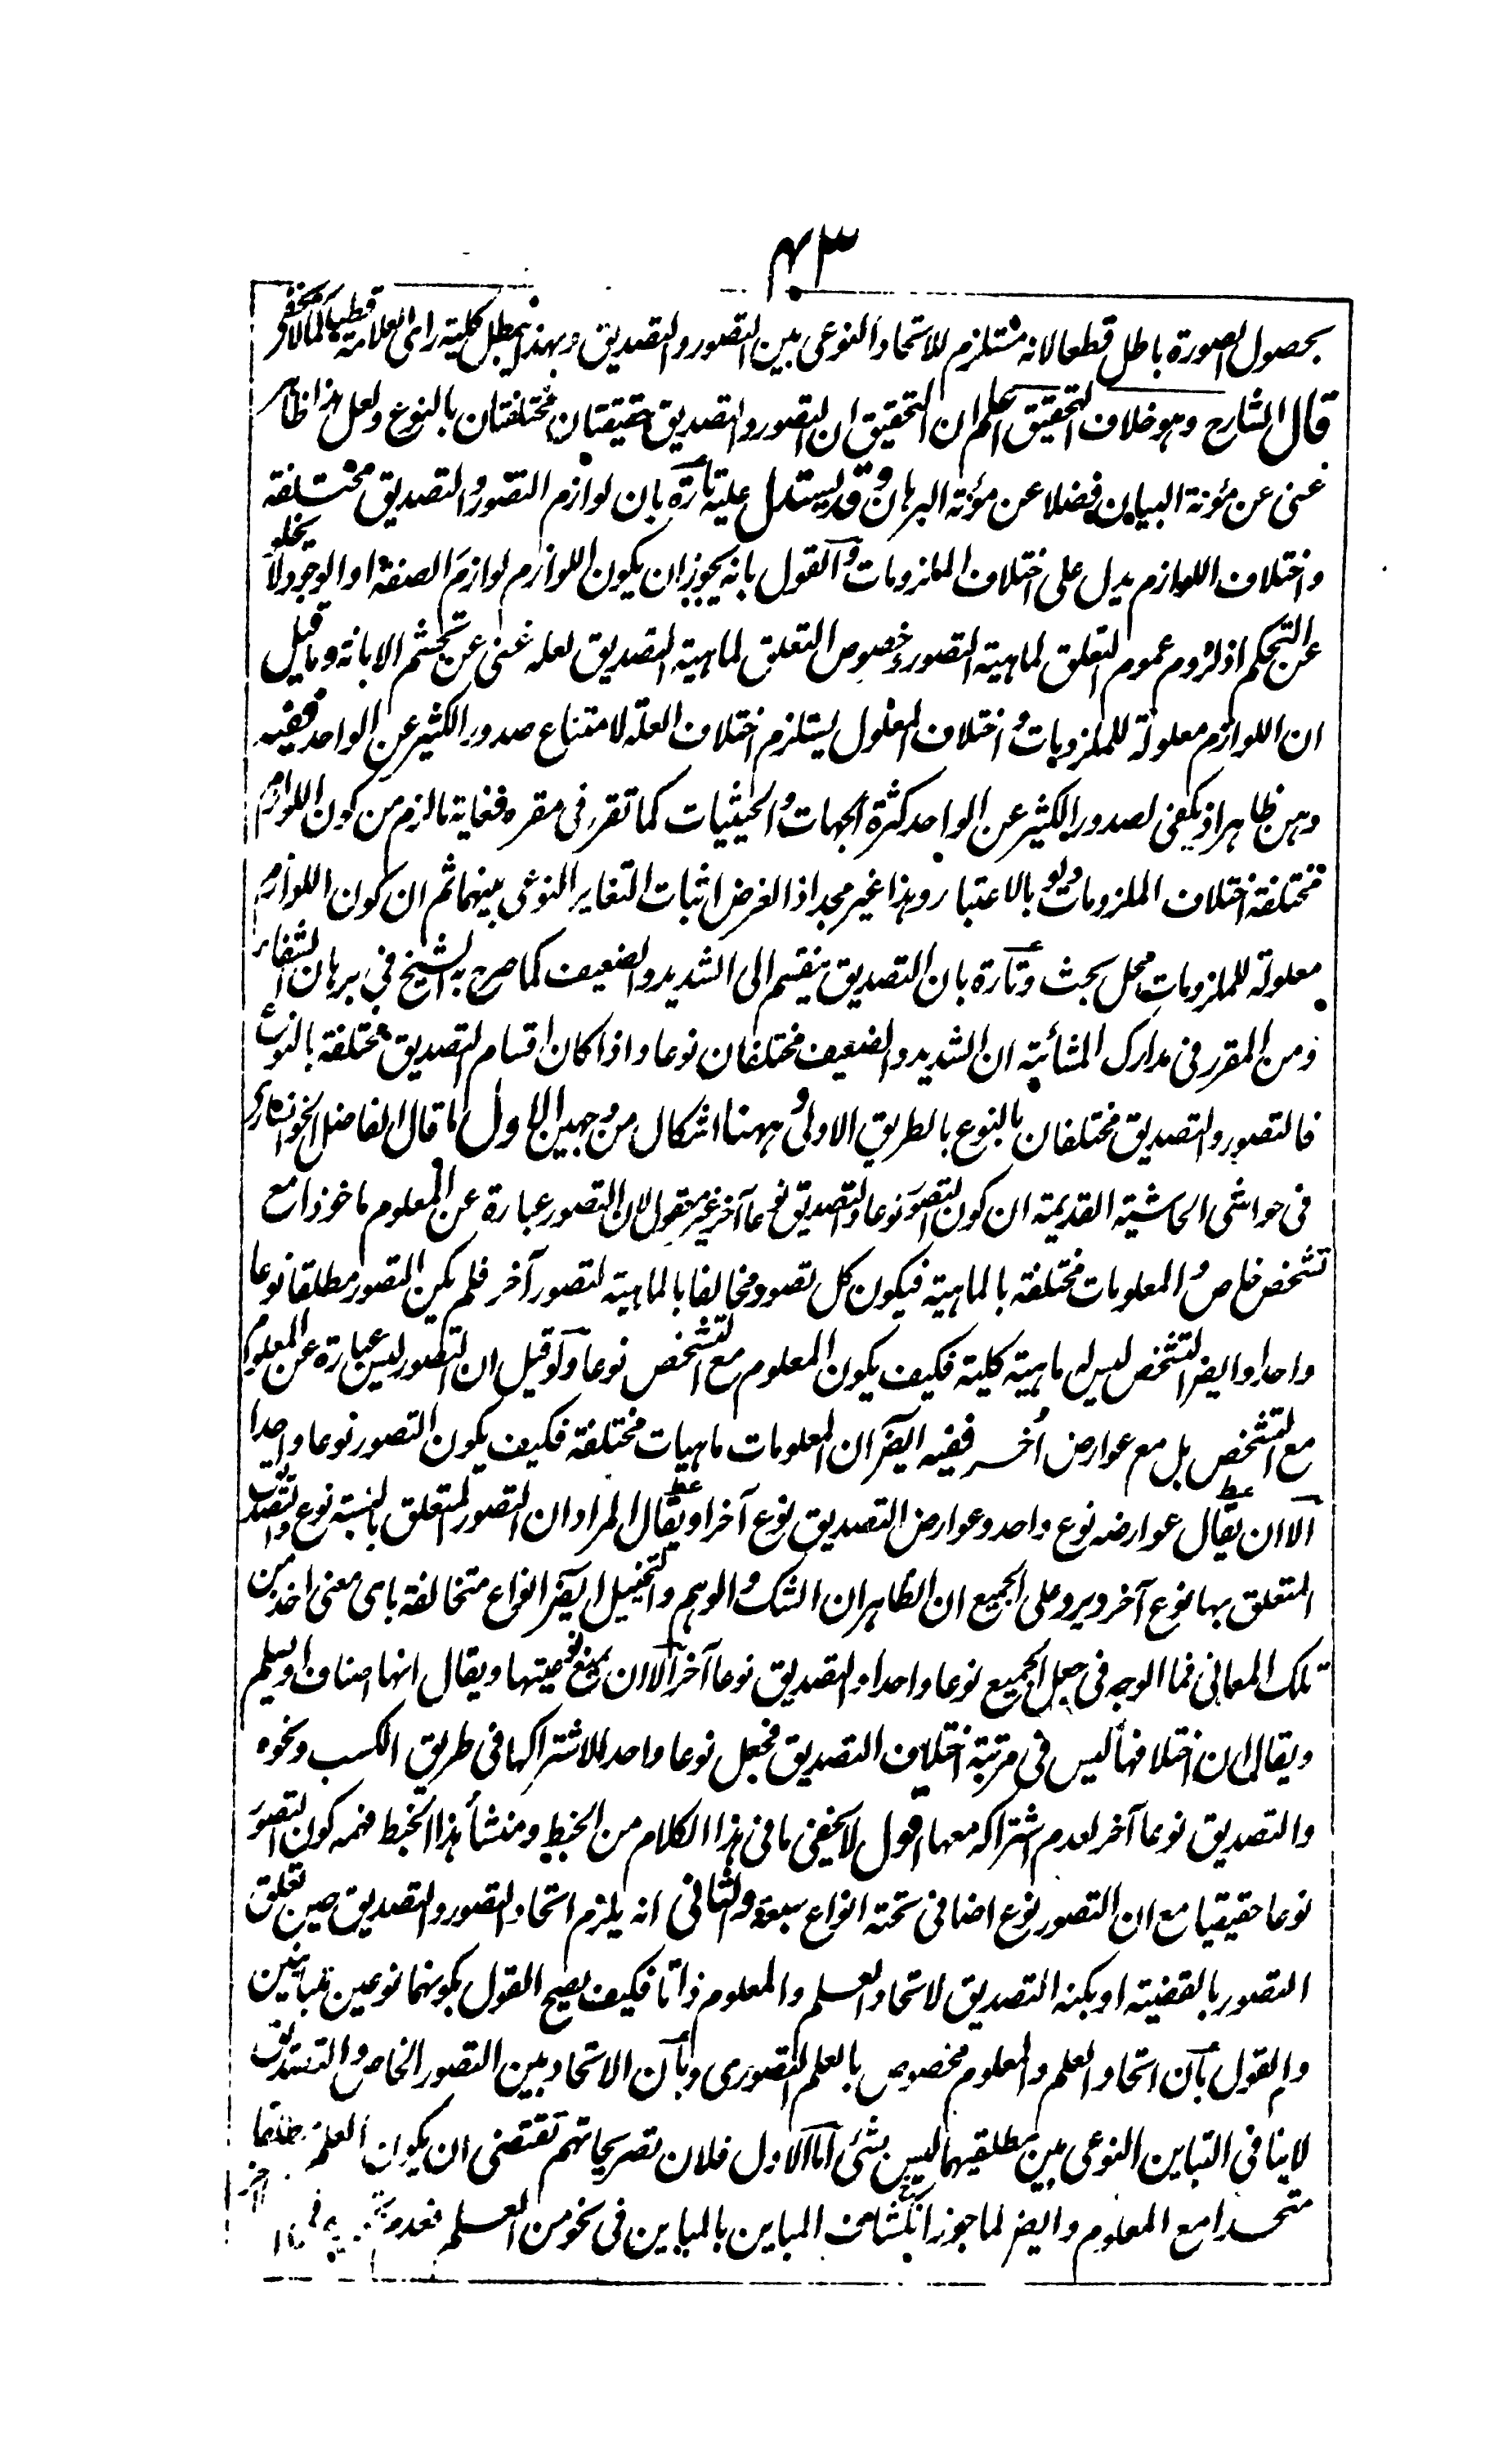 ۴۳
بحصول الصورة باطل قطعا لانه مستلزم للاتحاد النوعى بين التصور والتصديق وبهذا يبطل كلية راى العلامة كما لا يخفى
قال الشارح وهو خلاف التحقيق اعلم ان التحقيق ان التصور والتصديق حقيقتان مختلفتان بالنوع ولعل هذا ظاهر
غنى عن مؤنة البيان فضلا عن مؤنة البرهان وقد يستدل عليه تارة بان لوازم التصور والتصديق مختلفة
واختلاف اللوازم يدل على اختلاف الملزومات والقول بانه يجوز ان يكون اللوازم لوازم الصنفة او الوجود لا يخلو
عن التحكم اذ لزوم عموم التعلق لماهية التصور وخصوص التعلق لماهية التصديق لعله غنى عن تجشم الابانة وما قيل
ان اللوازم معلولة للملزومات واختلاف المعلول يستلزم اختلاف العلة لامتناع صدور الكثير عن الواحد ففيه
وهن ظاهر اذ يكفى لصدور الكثير عن الواحد كثرة الجهات والحيثيات كما تقرر فى مقره فغاية ما لزم من كون اللوازم
مختلفة اختلاف الملزومات ولو بالاعتبار وهذا غير مجد اذ الغرض اثبات التغاير النوعى بينهما ثم ان كون اللوازم
معلولة للملزومات محل بحث وتارة بان التصديق ينقسم الى الشديد والضعيف كما صرح به الشيخ في برهان الشفاء
ومن المقرر فى مدارك المشائية ان الشديد والضعيف مختلفان نوعا واذا كان اقسام التصديق مختلفة بالنوع
فالتصور والتصديق مختلفان بالنوع بالطريق الاولى وههنا اشكال من وجهين الاول ما قال الفاضل الخوانسارى
فى حواشى الحاشية القديمة ان كون التصور نوعا والتصديق نوعا آخر غير معقول لان التصور عبارة عن المعلوم ماخوذا مع
تشخص خاص والمعلومات مختلفة بالماهية فيكون كل تصور مخالفا بالماهية لتصور آخر فلم يكن التصور مطلقا نوعا
واحدا وايضا التشخص ليس له ماهية كلية فكيف يكون المعلوم مع التشخص نوعا ولو قيل ان التصور ليس عبارة عن المعلوم
مع التشخص بل مع عوارض اُخر ففيه ايضا ان المعلومات ماهيات مختلفة فكيف يكون التصور نوعا واحدا
الا ان يقال عوارضه نوع واحد وعوارض التصديق نوع آخر او يقال المراد ان التصور المتعلق بالنسبة نوع والتصديق
المتعلق بها نوع آخر ويرد على الجميع ان الظاهر ان الشك والوهم والتخييل ايضا انواع متخالفة باى معنى اخذ من
تلك المعانى فما الوجه فى جعل الجميع نوعا واحدا والتصديق نوعا آخر الا ان يمنع نوعيتها ويقال انها اصناف او يسلم
ويقال ان اختلافها ليس فى مرتبة اختلاف التصديق فجعل نوعا واحدا لاشتراكها فى طريق الكسب ونحوه
والتصديق نوعا آخر لعدم اشتراكه معها اقول لا يخفى ما فى هذا الكلام من الخبط ومنشأ هذا الخبط فهمه كون التصور
نوعا حقيقيا مع ان التصور نوع اضافى تحته انواع سبعة والثانى انه يلزم اتحاد التصور والتصديق حين تعلق
التصور بالقضية او بكنه التصديق لاتحاد العلم والمعلوم ذاتا فكيف يصح القول بكونهما نوعين متباينين
والقول بان اتحاد العلم والمعلوم مخصوص بالعلم التصورى وبان الاتحاد بين التصور الخاص والتصديق
لا ينافى التباين النوعى بين مطلقيهما ليس بشئ اما الاول فلان تصريحاتهم تقتضى ان يكون العلم مطلقا
متحدا مع المعلوم وايضا لما جوز انكشاف المباين بالمباين فى نحو من العلم